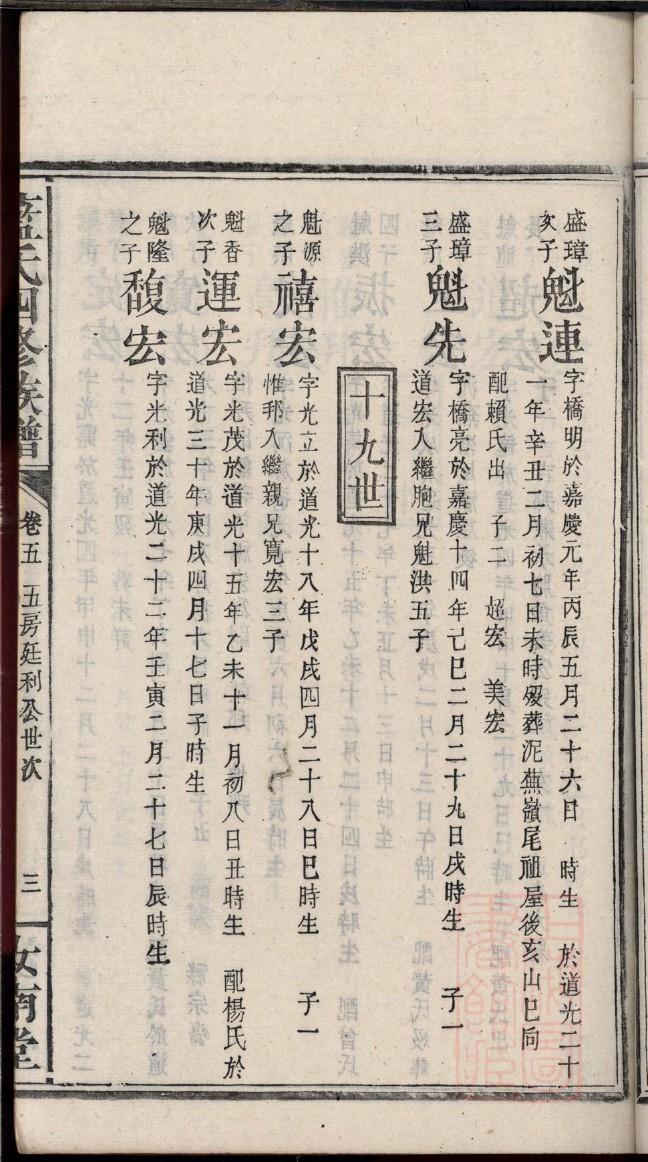 盛璋
次子
魁連
字橋明於嘉慶元年丙辰五月二十六日 時生 於道光二十
一年辛丑二月初七日未時歿葬泥蕪嶺尾祖屋後亥山巳向
配賴氏出 子二 超宏 美宏
盛璋
三子
魁先
字橋亮於嘉慶十四年己巳二月二十九日戌時生 子一
道宏入繼胞兄魁洪五子
十九世
魁源
之子
禧宏
字光立於道光十八年戊戌四月二十八日巳時生 子一
惟邦入繼親兄寬宏三子
魁香
次子
運宏
字光茂於道光十五年乙未十一月初八日丑時生 配楊氏於
道光三十年庚戌四月十七日子時生
魁隆
之子
馥宏
字光利於道光二十二年壬寅二月二十七日辰時生
氏四修族譜
卷五 五房廷利公世次
三
汝南堂